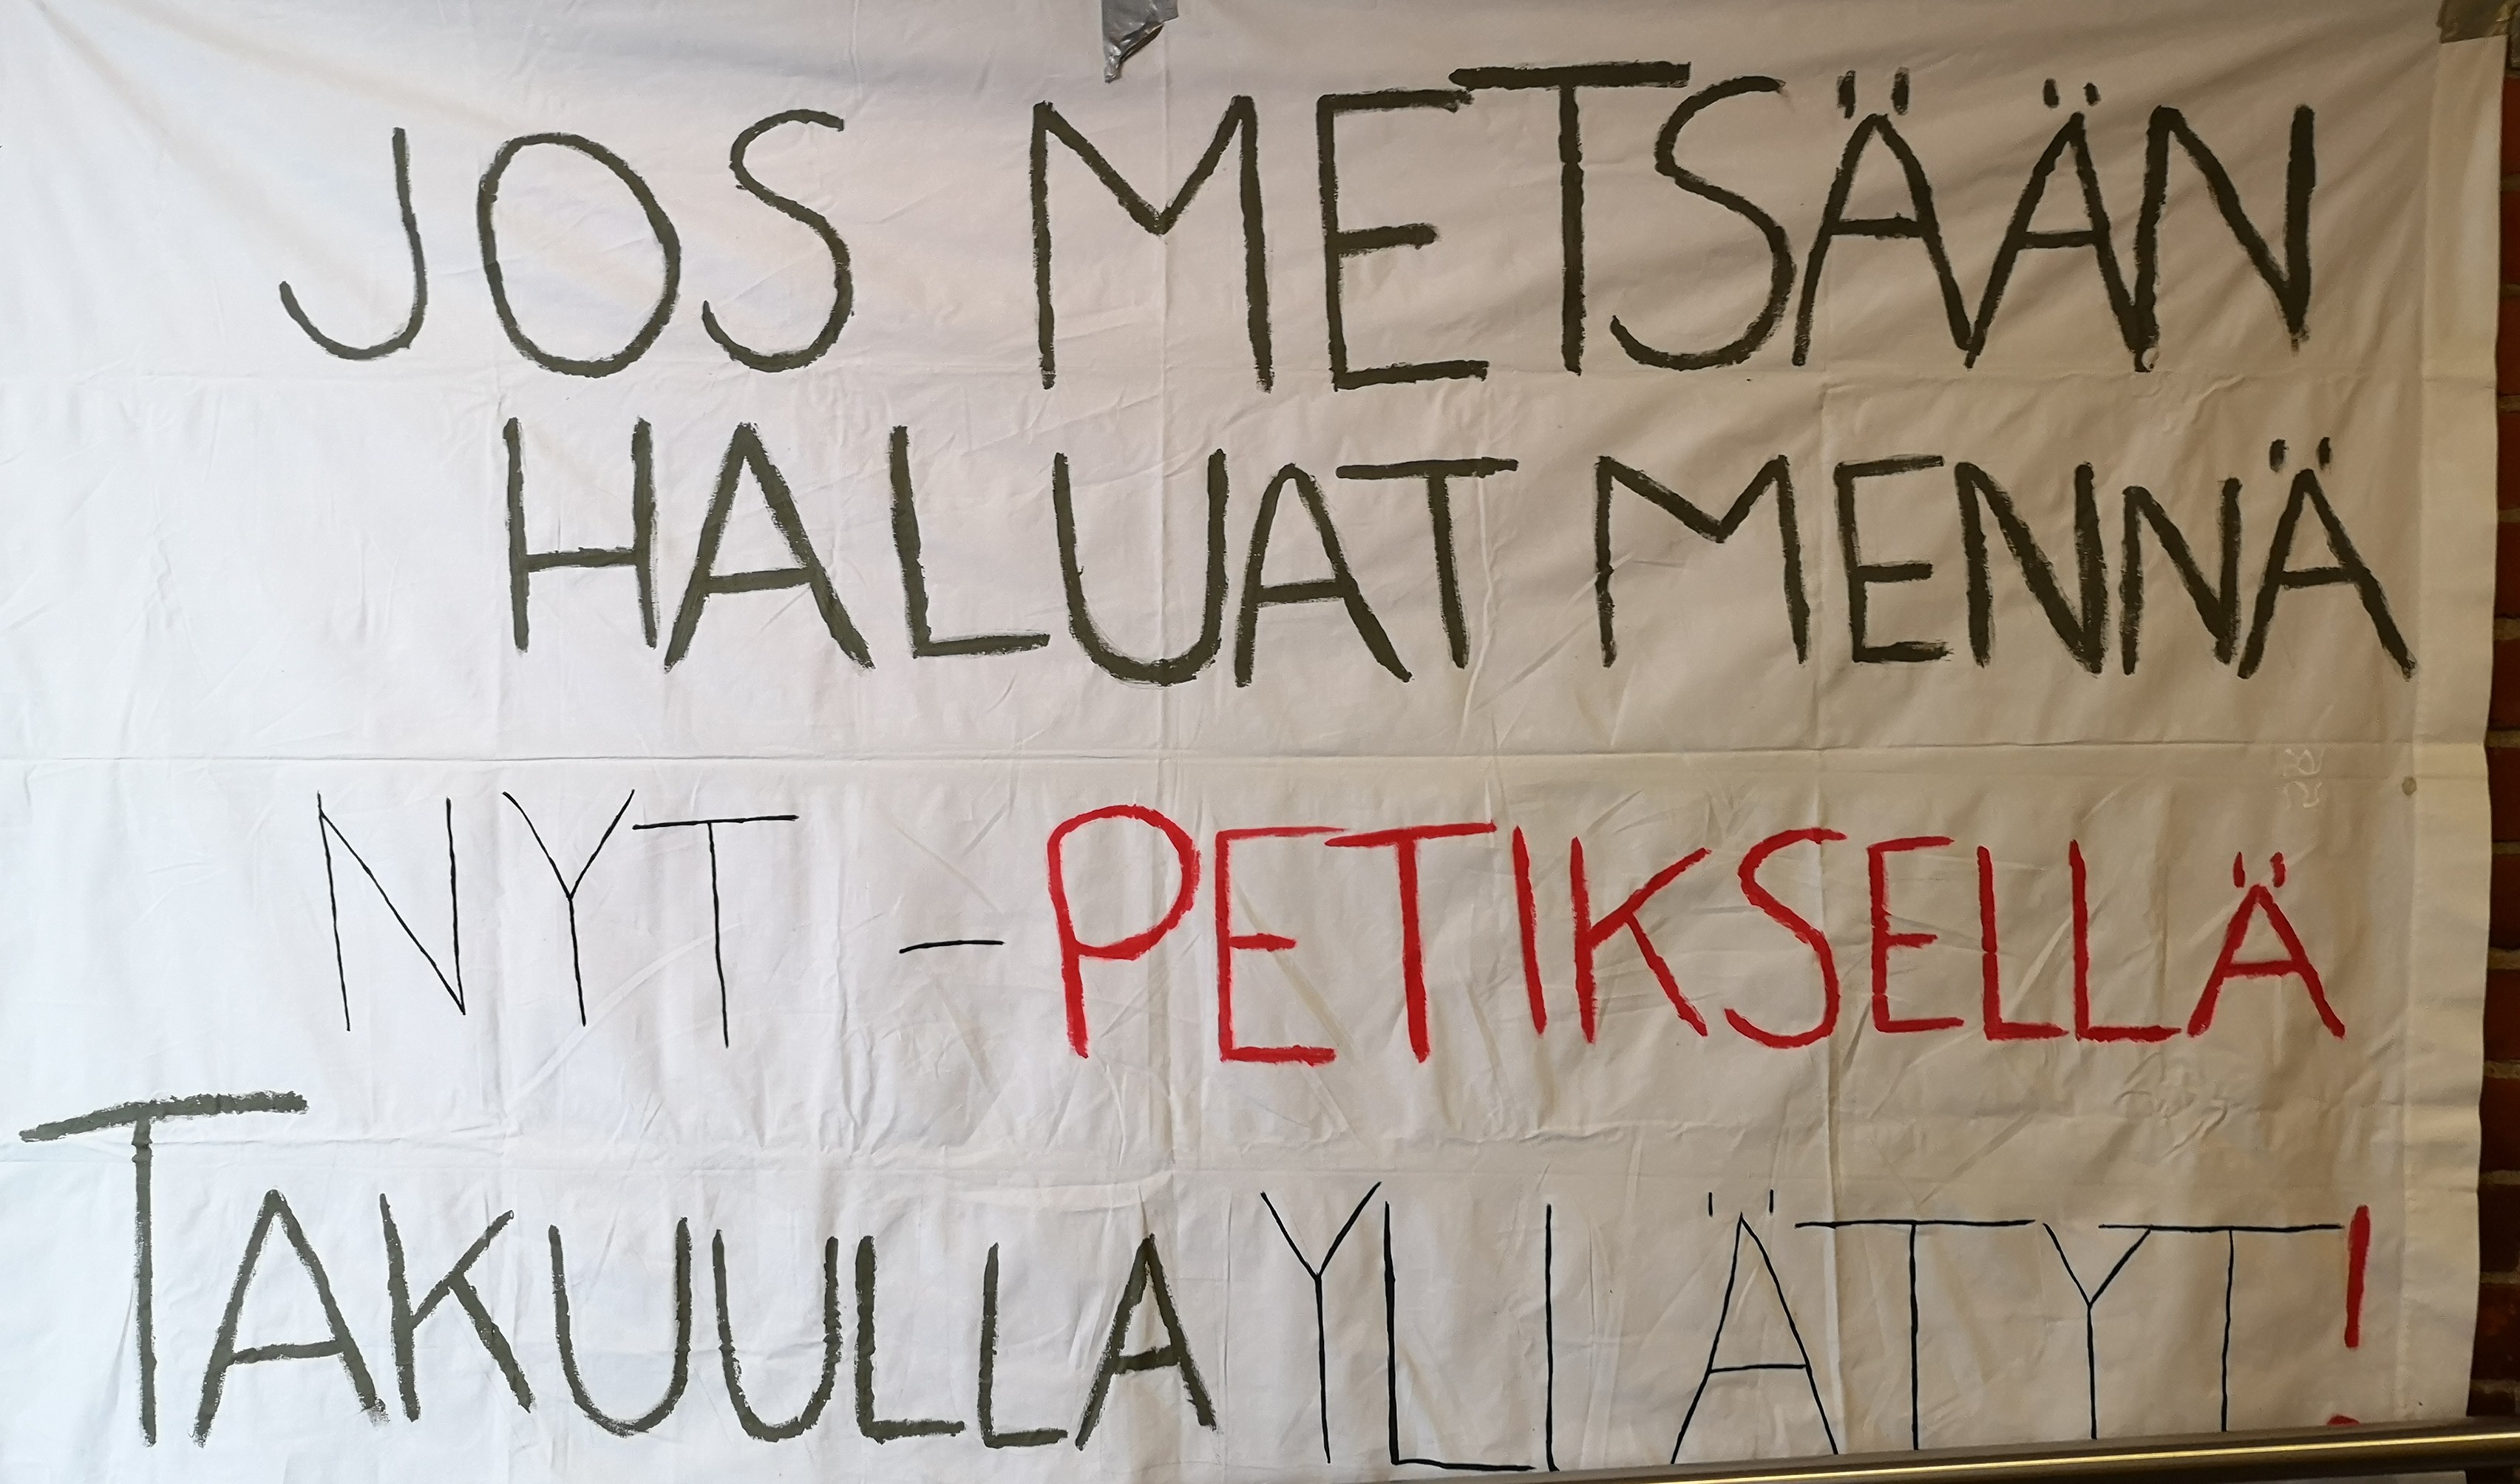 JOS METSÄÄN
HALUAT MENNÄ
NYT - PETIKSELLÄ
TAKUULLA YLLÄTYT!